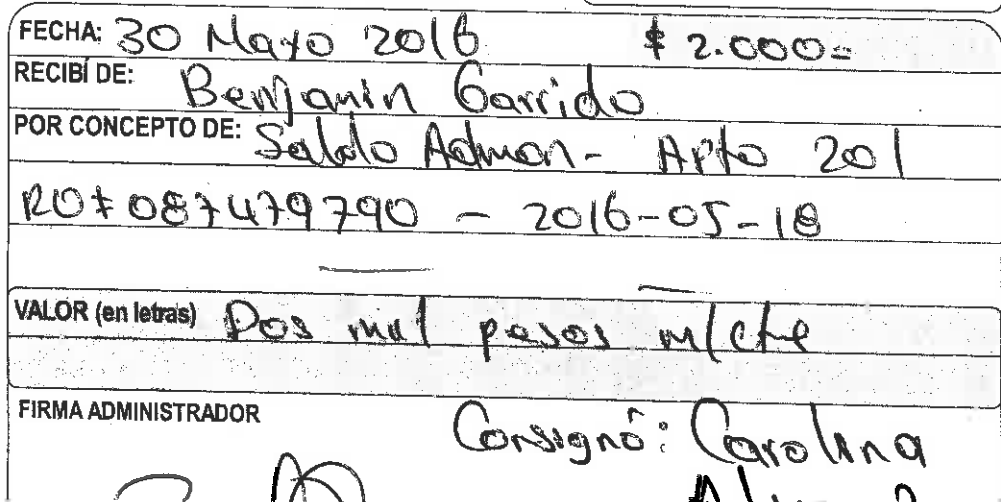 FECHA: 30 Mayo 2016 $ 2.000=
RECIBÍ DE: Benjamin Garrido
POR CONCEPTO DE: Saldo Admon- Apto 201
RO# 087479790 - 2016-05-18
VALOR (en letras) Dos mil pesos m/cte
FIRMA ADMINISTRADOR Consignó: Carolina